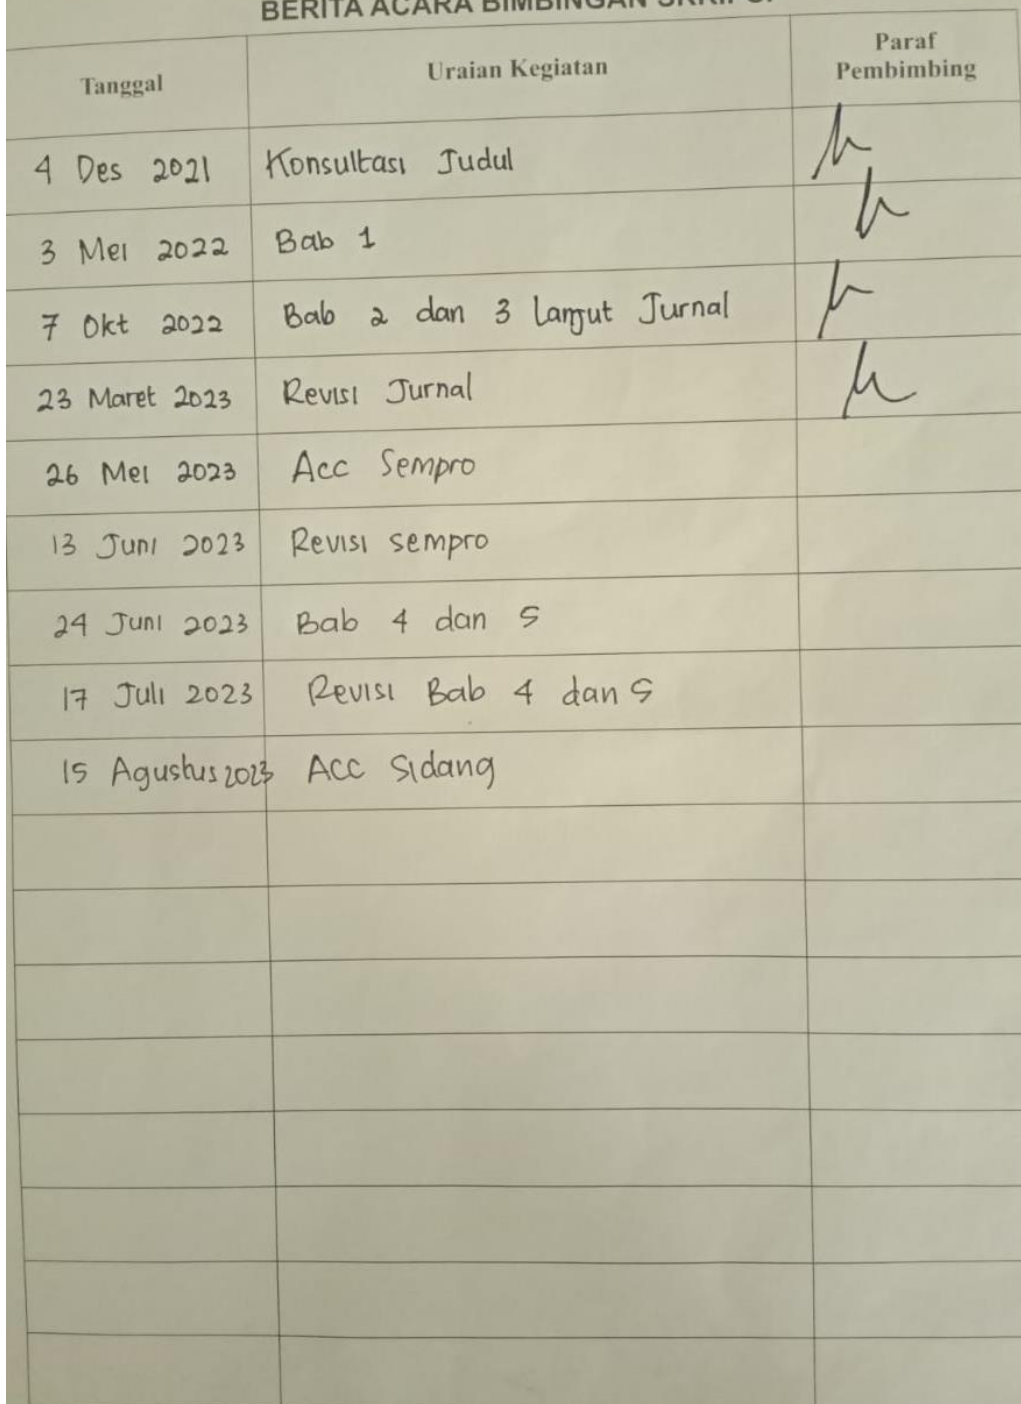 BERITA ACARA BIMBINGAN SKRIPSI
Tanggal Uraian Kegiatan Paraf Pembimbing
4 Des 2021 Konsultasi Judul
3 Mei 2022 Bab 1
7 Okt 2022 Bab 2 dan 3 lanjut Jurnal
23 Maret 2023 Revisi Jurnal
26 Mei 2023 Acc Sempro
13 Juni 2023 Revisi sempro
24 Juni 2023 Bab 4 dan 5
17 Juli 2023 Revisi Bab 4 dan 5
15 Agustus 2023 Acc Sidang